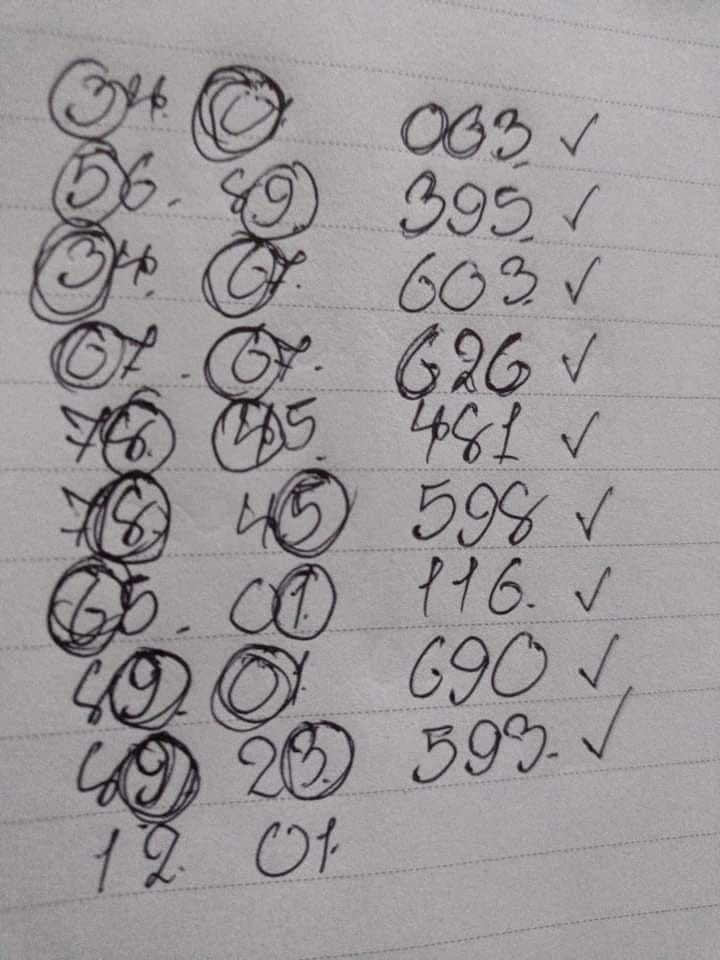 34. 01. 063. ✓
56. 89 395. ✓
34. 67. 603. ✓
67. 67. 626 ✓
78. 45. 481 ✓
78 45 598 ✓
65. 01. 116. ✓
89. 01 690 ✓
89. 23. 593. ✓
12. 01.